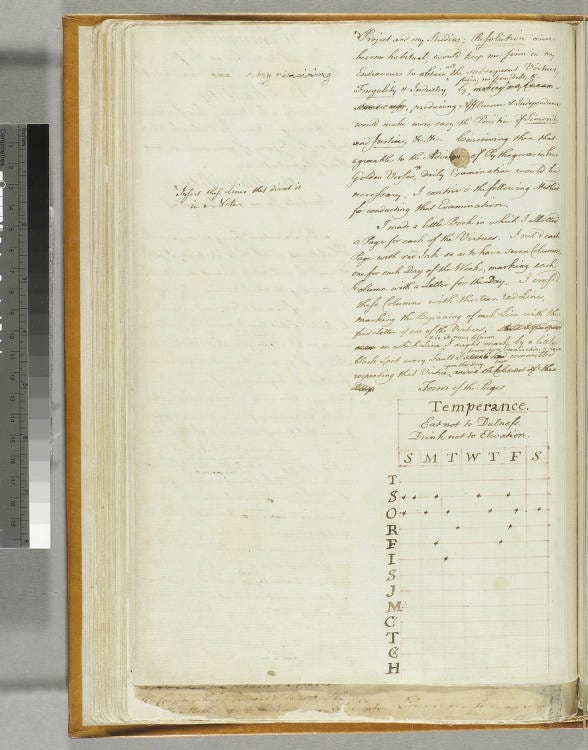 Project and my Studies; Resolution once
become habitual, would keep me firm in my
Endeavours to obtain all the subsequent Virtues;
Frugality & Industry, by freeing me from Debt, &
producing Affluence & Independance
would make more easy the Practice of Sincerity
and Justice, &c. &c. Conceiving then that
agreable to the Advice of Pythagoras in his
Golden Verses, daily Examination would be
necessary, I contriv'd the following Method
for conducting that Examination.
I made a little Book in which I allotted
a Page for each of the Virtues. I rul'd each
Page with red Ink so as to have seven Columns,
one for each Day of the Week, marking each
Column with a Letter for the Day. I cross'd
these Columns with thirteen red Lines,
marking the Beginning of each Line with the
first Letter of one of the Virtues,
on which Line & in its proper Column I might mark by a little
black Spot every Fault I committed
respecting that Virtue upon that Day
Form of the Pages
Insert those Lines that direct it
in a Note
my remaining
Temperance.
Eat not to Dulness.
Drink not to Elevation.
S M T W T F S
T
S
O
R
F
I
S
J
M
C
T
C
H